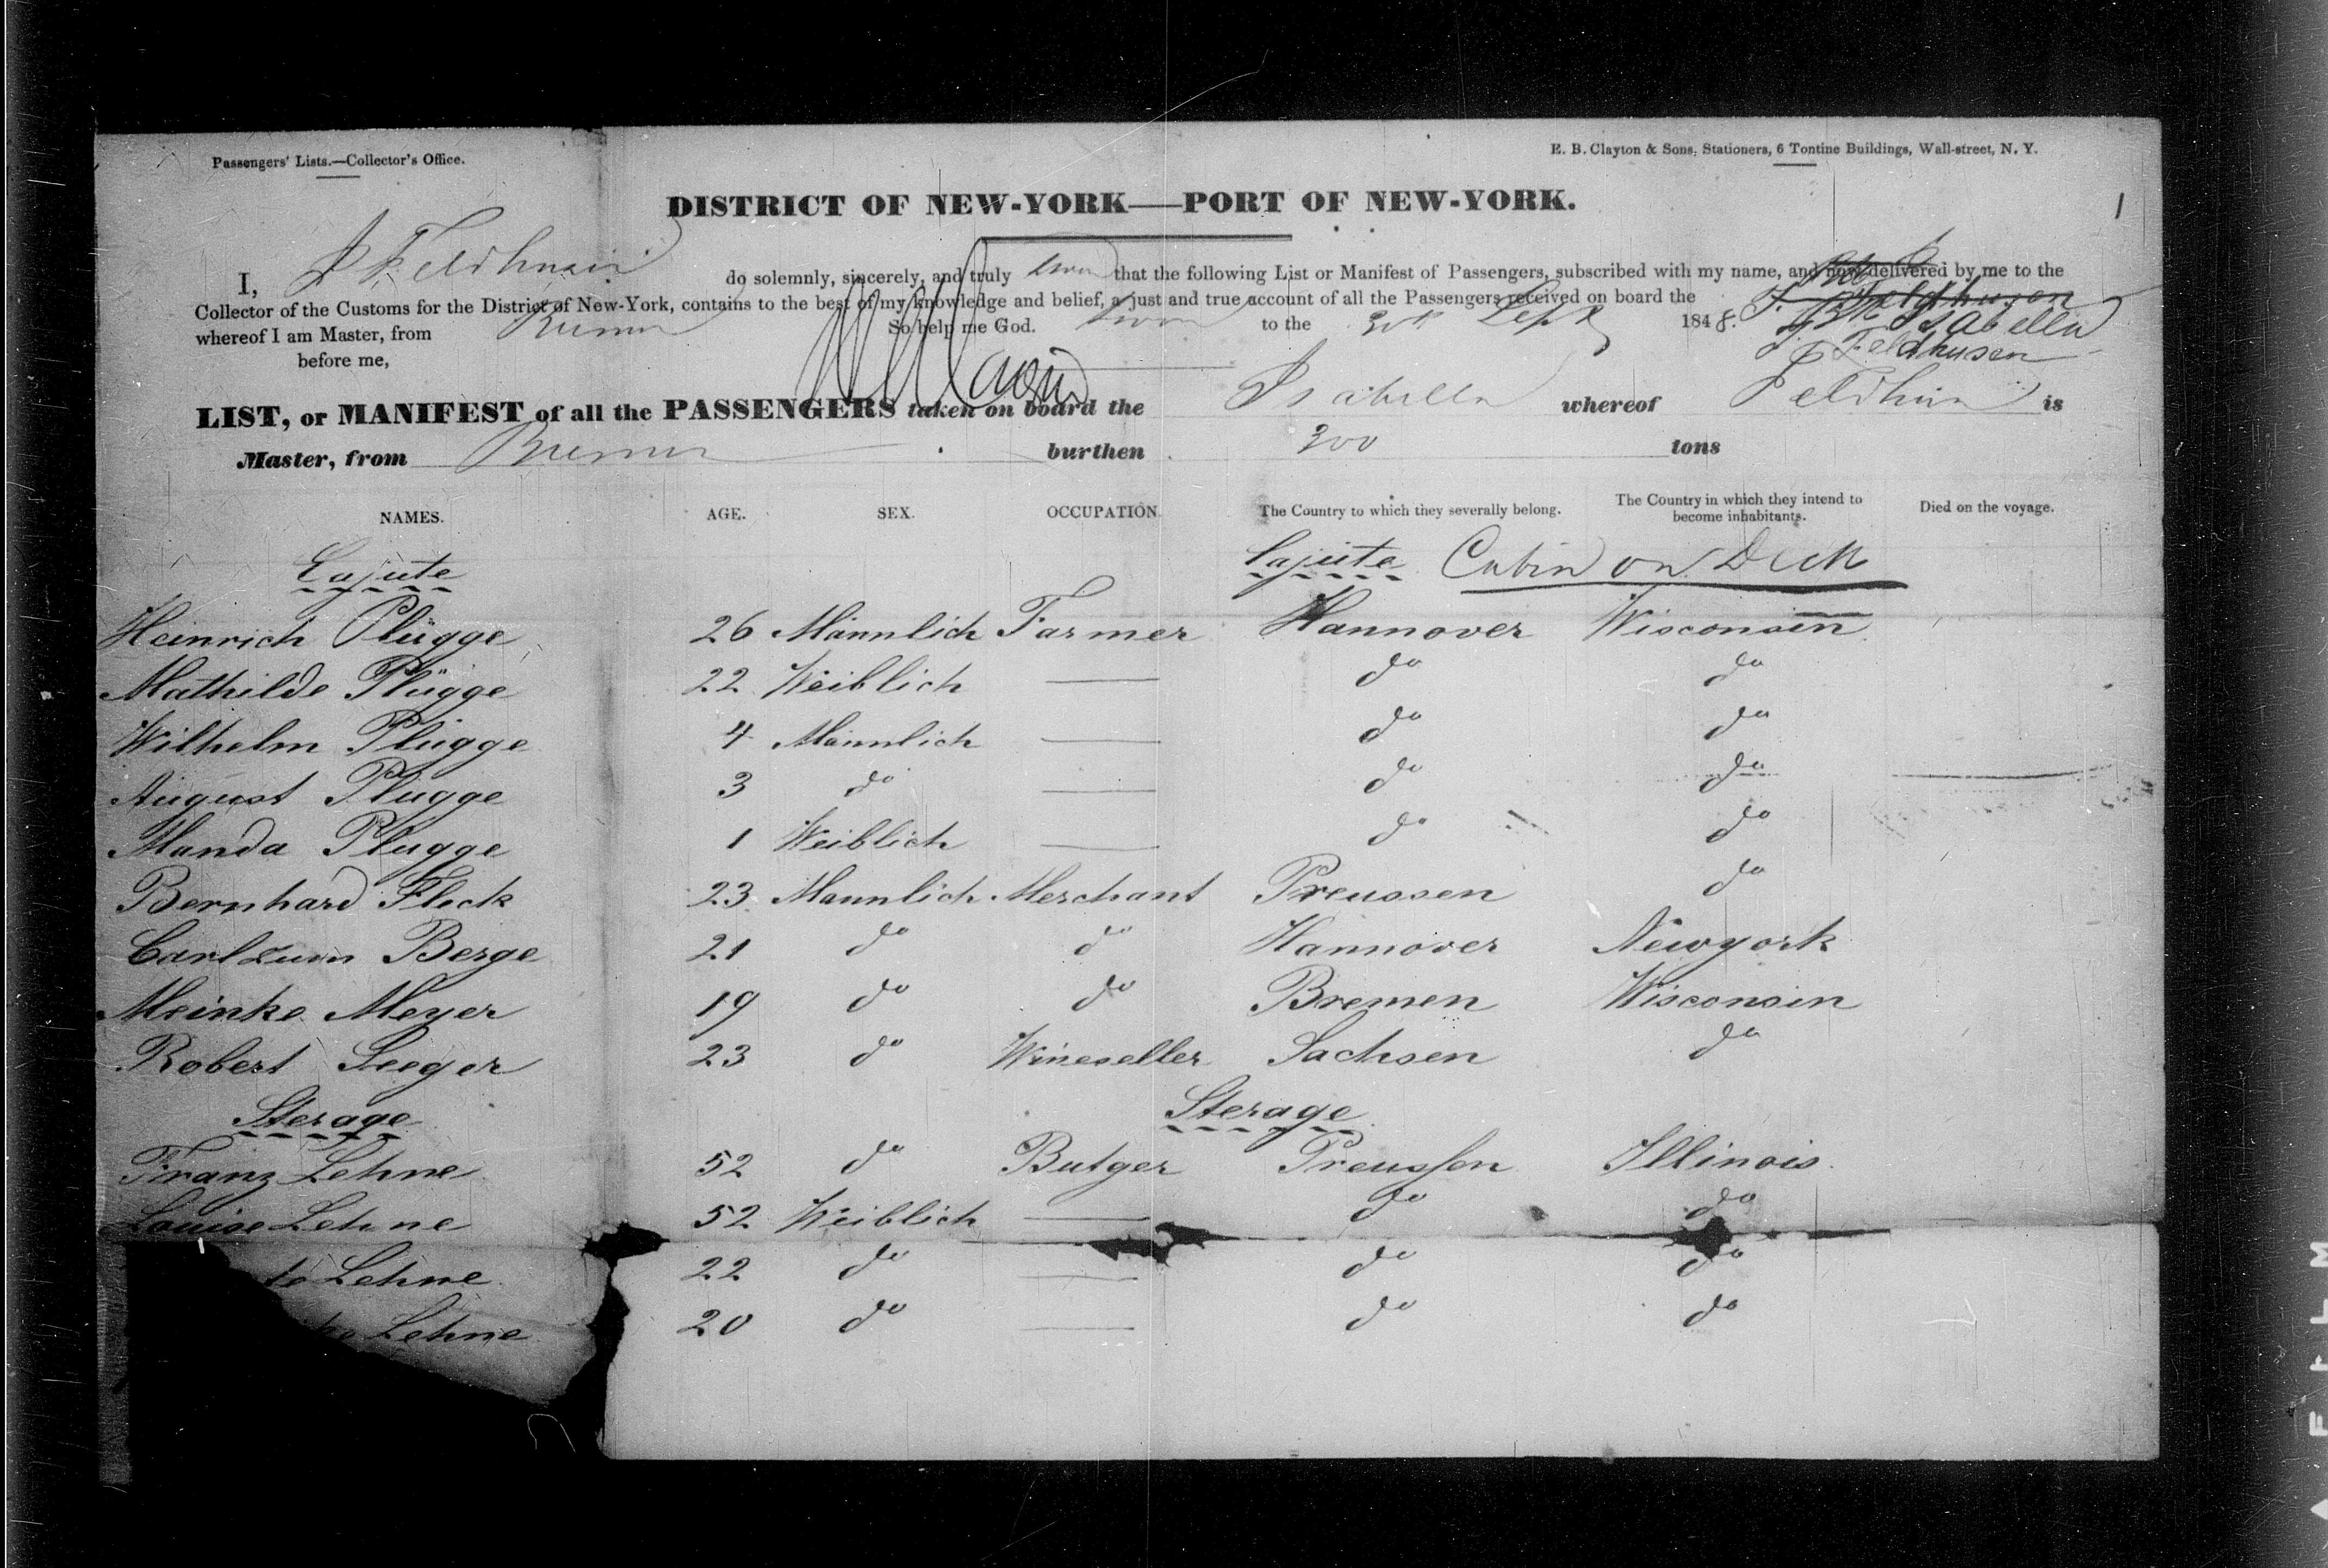 Passengers' Lists.—Collector's Office.
E. B. Clayton & Sons, Stationers, 6 Tontine Buildings, Wall-street, N. Y.
DISTRICT OF NEW-YORK—PORT OF NEW-YORK.
1
I, J Feldhusen do solemnly, sincerely, and truly that the following List or Manifest of Passengers, subscribed with my name, and now delivered by me to the
Collector of the Customs for the District of New-York, contains to the best of my knowledge and belief, a just and true account of all the Passengers received on board the Bk Isabella
whereof I am Master, from Bremen So help me God. Sworn to the 30th Sept 1848. J. Feldhusen
before me,
LIST, or MANIFEST of all the PASSENGERS taken on board the Isabella whereof Feldhusen is
Master, from Bremen burthen 300 tons
NAMES. AGE. SEX. OCCUPATION. The Country to which they severally belong. The Country in which they intend to become inhabitants. Died on the voyage.
Cajüte Cajüte Cabin on Deck
Heinrich Plügge 26 Männlich Farmer Hannover Wisconsin
Mathilde Plügge 22 Weiblich — do do
Wilhelm Plügge 4 Männlich — do do
August Plügge 3 do — do do
Manda Plügge 1 Weiblich — do do
Bernhard Fleck 23 Mannlich Merchant Preussen do
Carl zum Berge 21 do do Hannover Newyork
Meinke Meyer 19 do do Bremen Wisconsin
Robert Seeger 23 do Wineseller Sachsen do
Sterage Sterage
Franz Lehne 52 do Butger Preussen Illinois
Louise Lehne 52 Weiblich — do do
te Lehne 22 do — do do
ke Lehne 20 do — do do